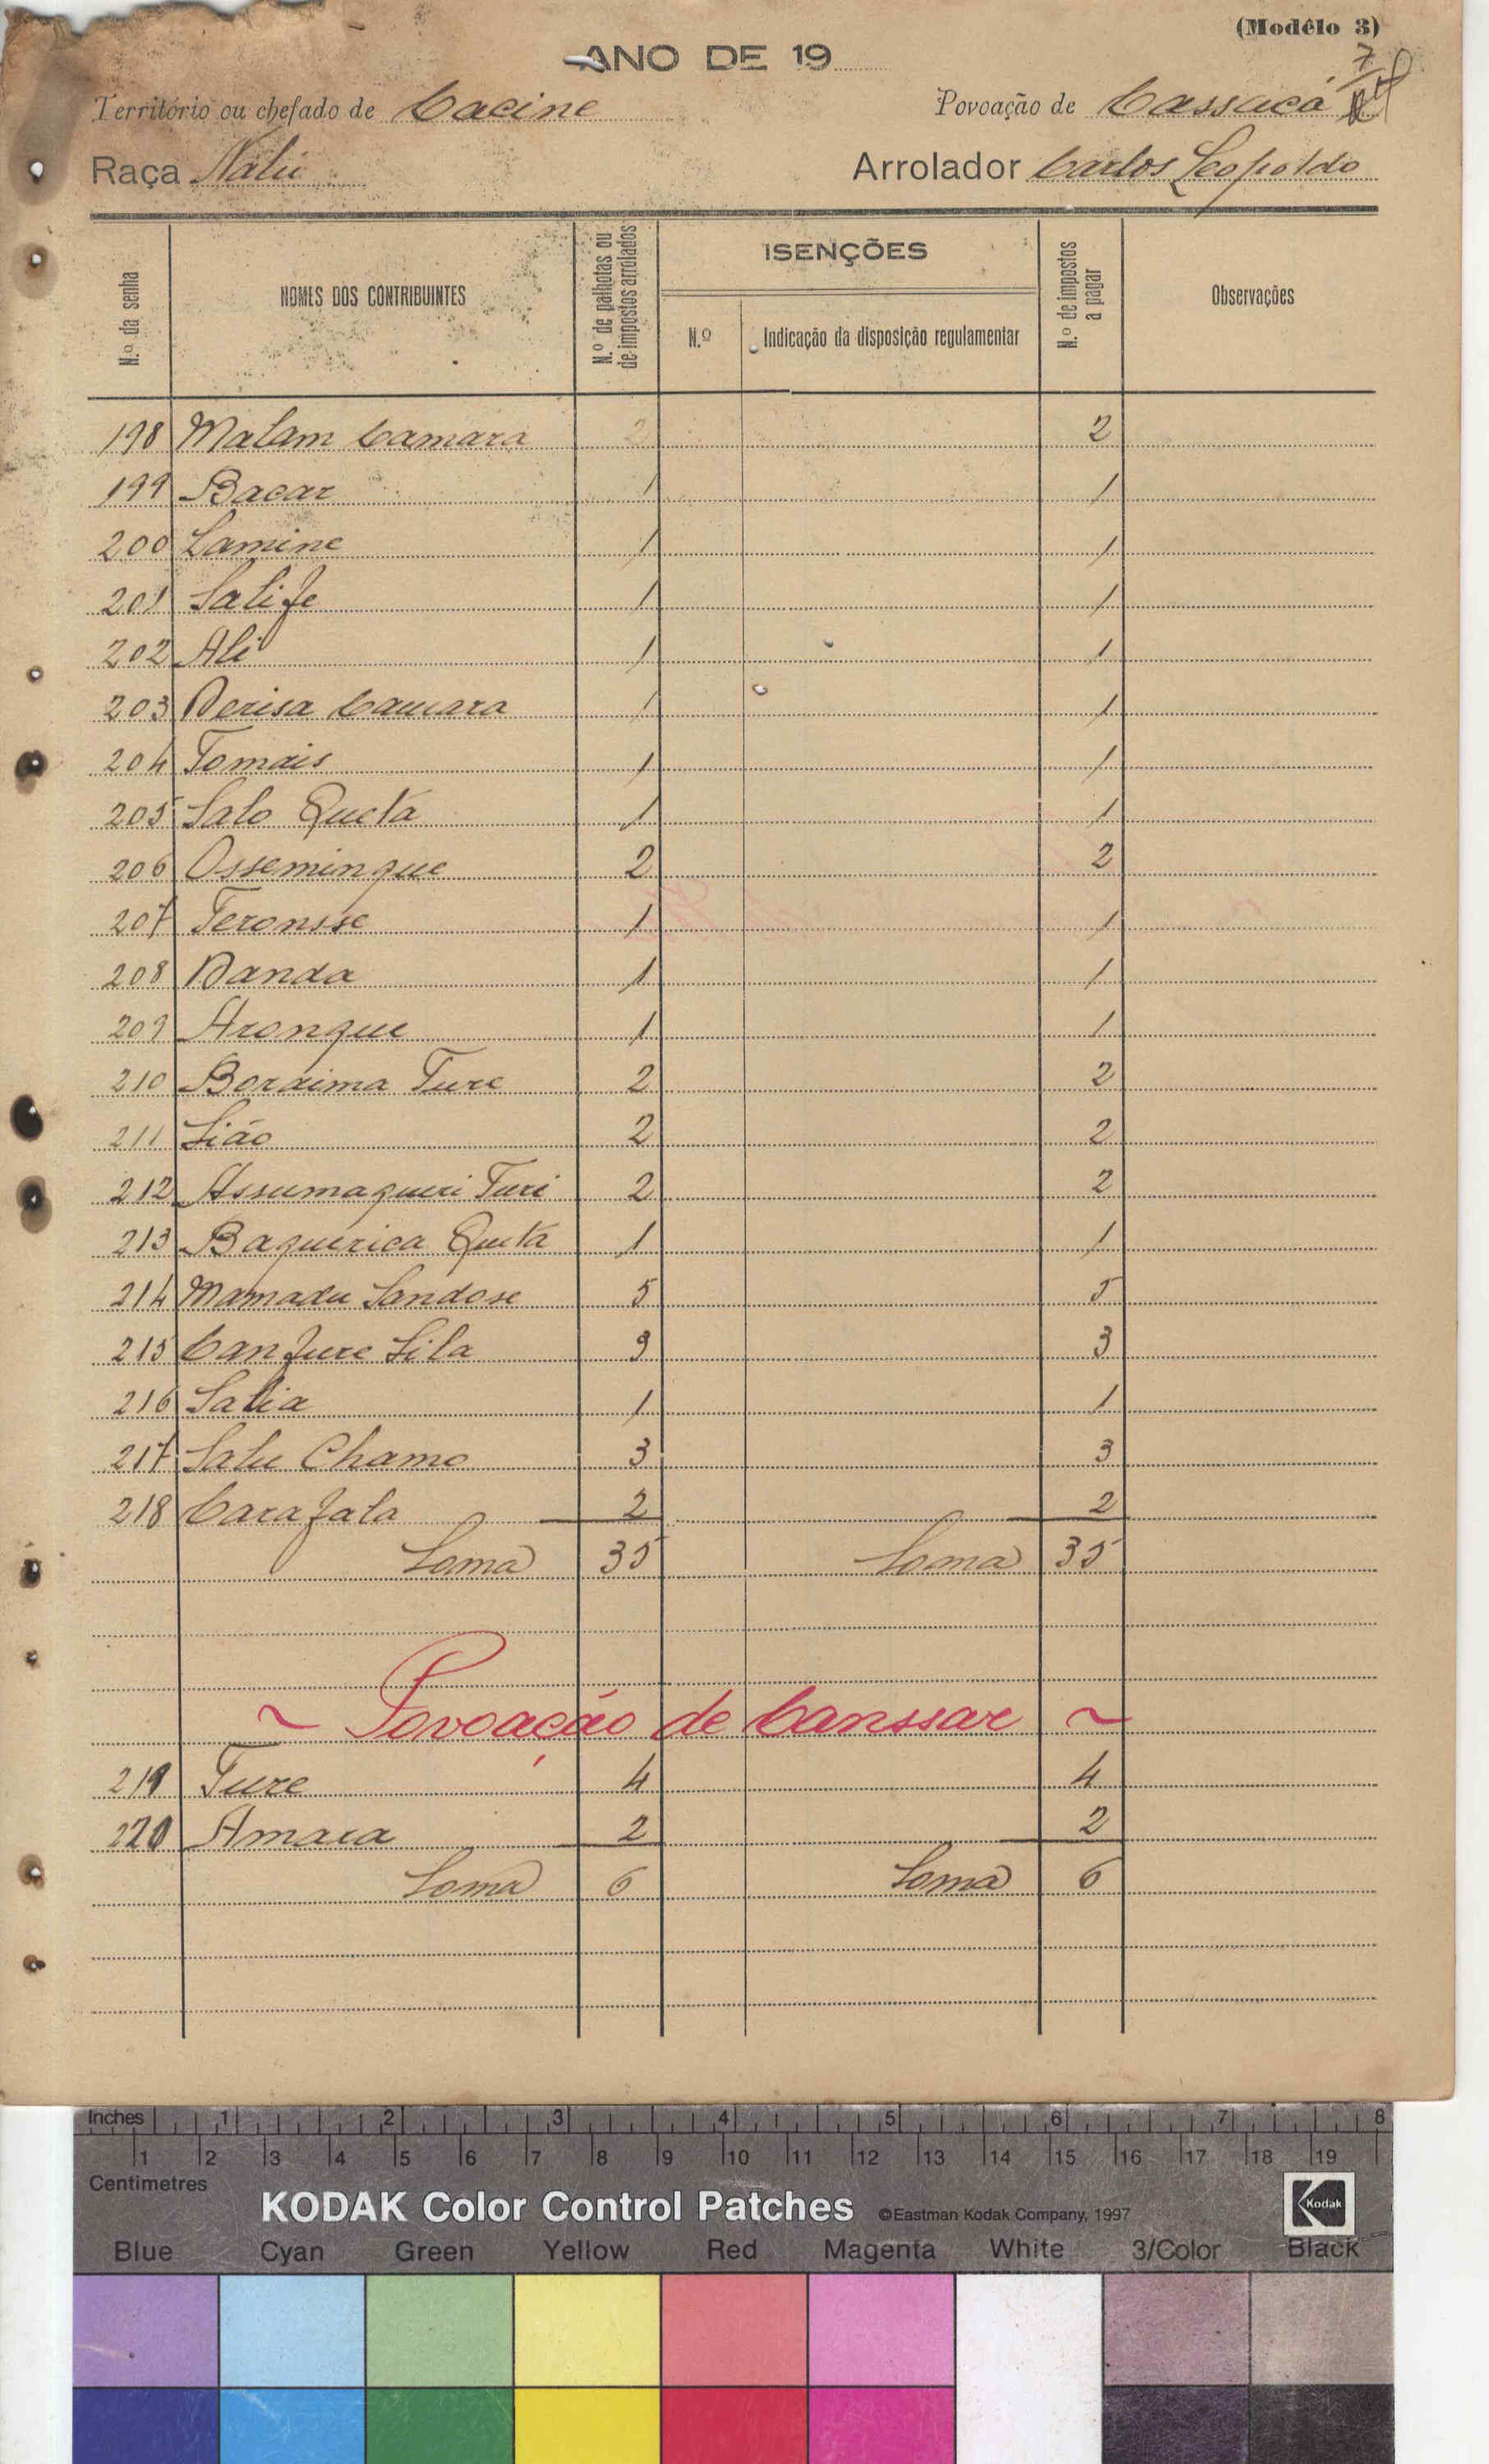 (Modêlo 3)
ANO DE 19
7
Território ou chefado de Cacine Povoação de Cassacá
Raça Nalú Arrolador Carlos Leopoldo
N.º da senha
NOMES DOS CONTRIBUINTES
N.º de palhotas ou de impostos arrolados
ISENÇÕES
N.º
Indicação da disposição regulamentar
N.º de impostos a pagar
Observações
198 Malam Camara 2 2
199 Bacar 1 1
200 Lamine 1 1
201 Salife 1 1
202 Ali 1 1
203 Derisa Camara 1 1
204 Tomais 1 1
205 Salo Queta 1 1
206 Osseminque 2 2
207 Feronsse 1 1
208 Danda 1 1
209 Aronque 1 1
210 Boraima Ture 2 2
211 Sião 2 2
212 Assumaqueri Turi 2 2
213 Baquerica Queta 1 1
214 Mamadu Sandose 5 5
215 Canfure Sila 3 3
216 Salia 1 1
217 Salu Chamo 3 3
218 Carafala 2 2
Soma 35 Soma 35
~ Povoação de Canssar ~
219 Ture 4 4
220 Amara 2 2
Soma 6 Soma 6
Inches 1 2 3 4 5 6 7 8
1 2 3 4 5 6 7 8 9 10 11 12 13 14 15 16 17 18 19
Centimetres
KODAK Color Control Patches ©Eastman Kodak Company, 1997 Kodak
Blue Cyan Green Yellow Red Magenta White 3/Color Black